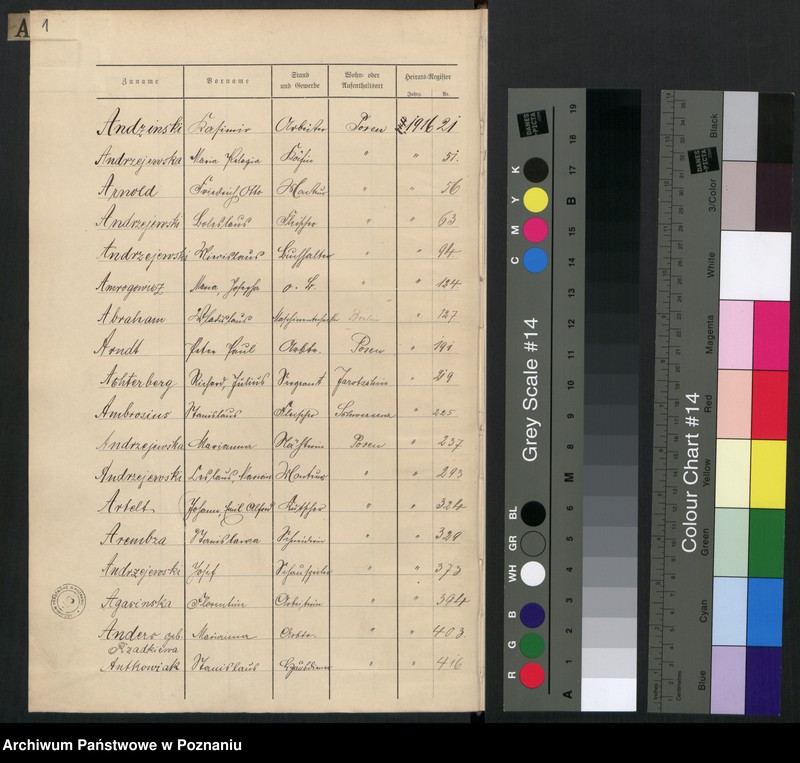 A 1
Zuname Vorname Stand und Gewerbe Wohn- oder Aufenthaltsort Heirats-Register
Jahrg. Nr.
Andzinski Kasimir Arbeiter Posen 1916 21
Andrzejewska Maria Pelagia Köchin " " 51.
Arnold Friedrich Otto " " 56
Andrzejewski Boleslaus Fleischer " " 63
Andrzejewski Buchhalter " " 94
Amrogowicz Maria, Josepha o. B. " " 124
Abraham Wladislaus Berlin " 127
Arndt Peter Paul Arbtr. Posen " 191
Achterberg Richard, Julius Sergeant Jarotschin " 219
Ambrosius Stanislaus Fleischer Schwersenz " 225
Andrzejewska Marianna Näherin Posen " 237
Andrzejewski " " 293
Artelt Johann, Emil Alfred Kutscher " " 324
Arembra Stanislawa Schneiderin " " 329
Andrzejewski Josef Schauspieler " " 373
Agacinska Florentine Arbeiterin " " 394
Anders geb. Marianna Arbtr. " " 403
Rzadkiewa
Antkowiak Stanislaus " " 416
DANES PICTA
Grey Scale #14
R G B WH GR BL C M Y K
A 1 2 3 4 5 6 7 M 8 9 10 11 12 13 14 15 B 16 17 18 19
DANES PICTA
Colour Chart #14
Blue Cyan Green Yellow Red Magenta White 3/Color Black
Inches Centimetres
Archiwum Państwowe w Poznaniu